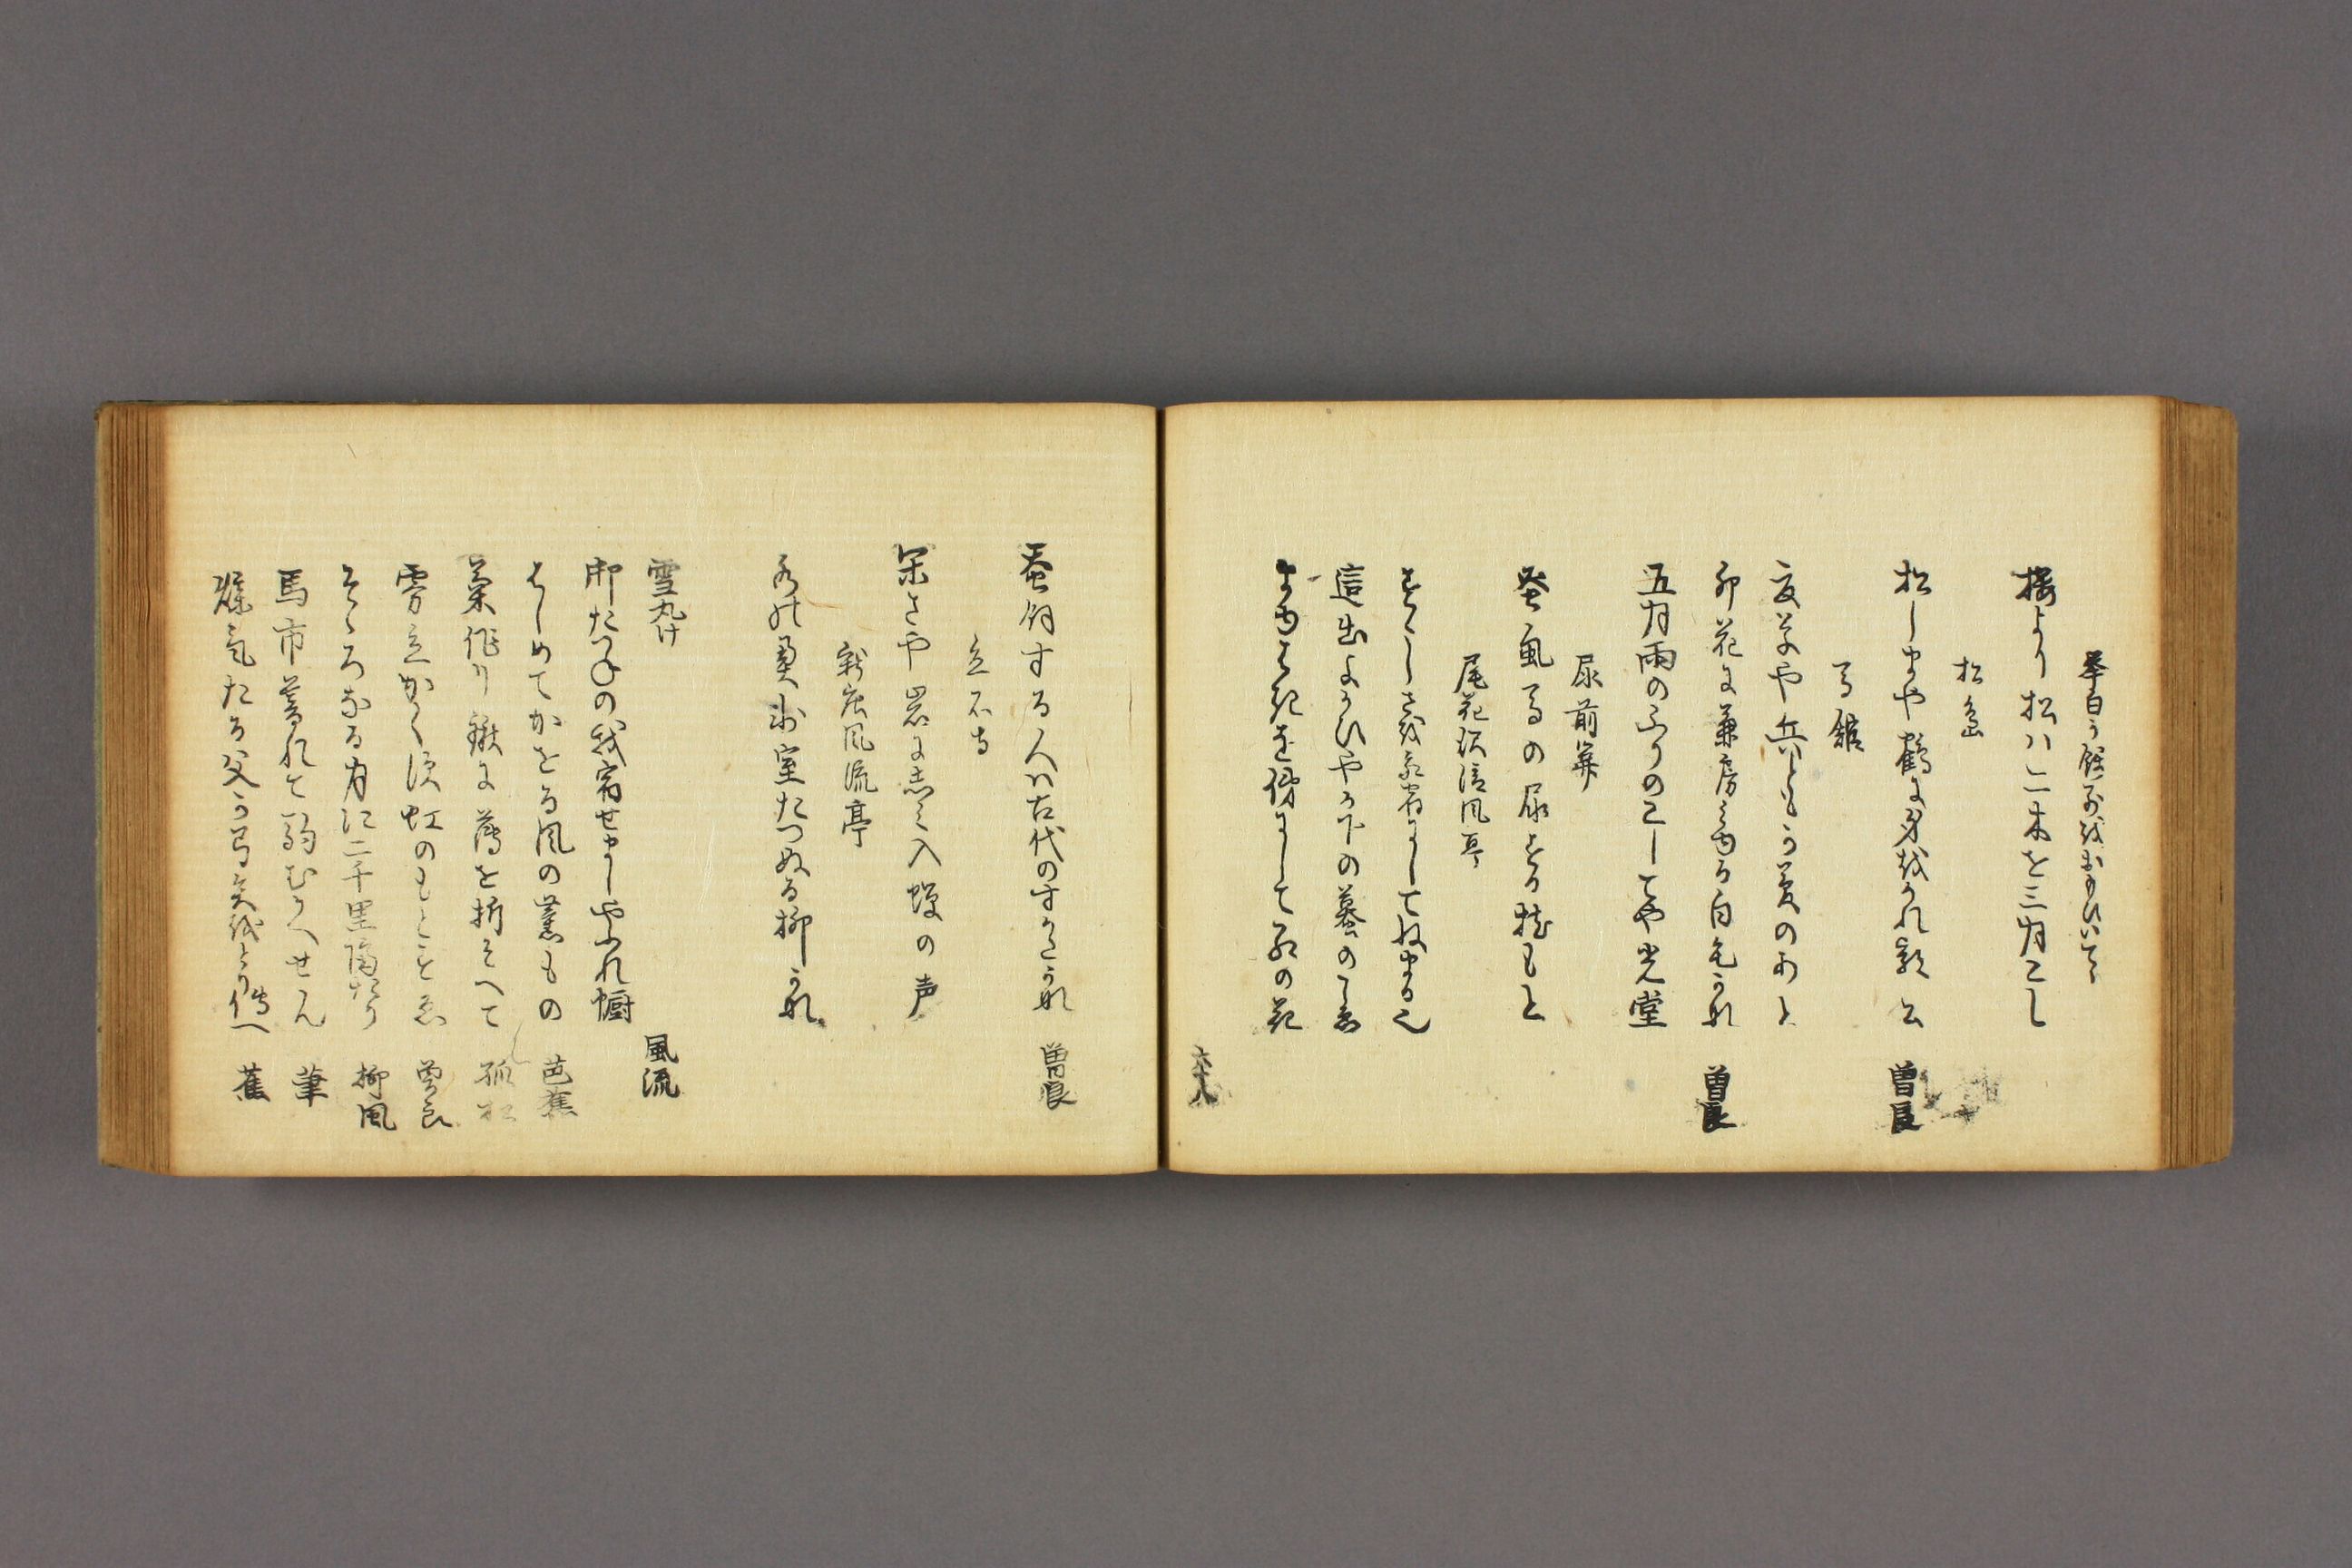 挙白か餞別をおもひいてゝ
桜より松ハ二木を三月こし
松島
松しまや鶴に身をかれ郭公　曽良
高館
夏草や兵ともか夢のあと
卯花に兼房みゆる白毛かな　曽良
五月雨のふりのこしてや光堂
尿前
蚤虱馬の尿する枕もと
尾花沢清風亭
すゝしさを我宿にしてねまる也
這出よかひやか下の蟇のこゑ
まゆはきを俤にして紅の花
六十八
蚕飼する人ハ古代のすかたかな　曽良
立石寺
閑さや岩にしみ入蝉の声
新庄風流亭
水の奥氷室たつぬる柳かな
雪丸け
御たつねの我宿せましやふれ幮　風流
はしめてかをる風の薫もの　芭蕉
菊作り鍬に薄を折そへて　孤松
雰立かくす虹のもとすゑ　曽良
そゝろなる月に二千里隔たり　柳風
馬市暮れて駒むかへせん　筆
煤気たる父か弓矢をとり伝へ　蕉